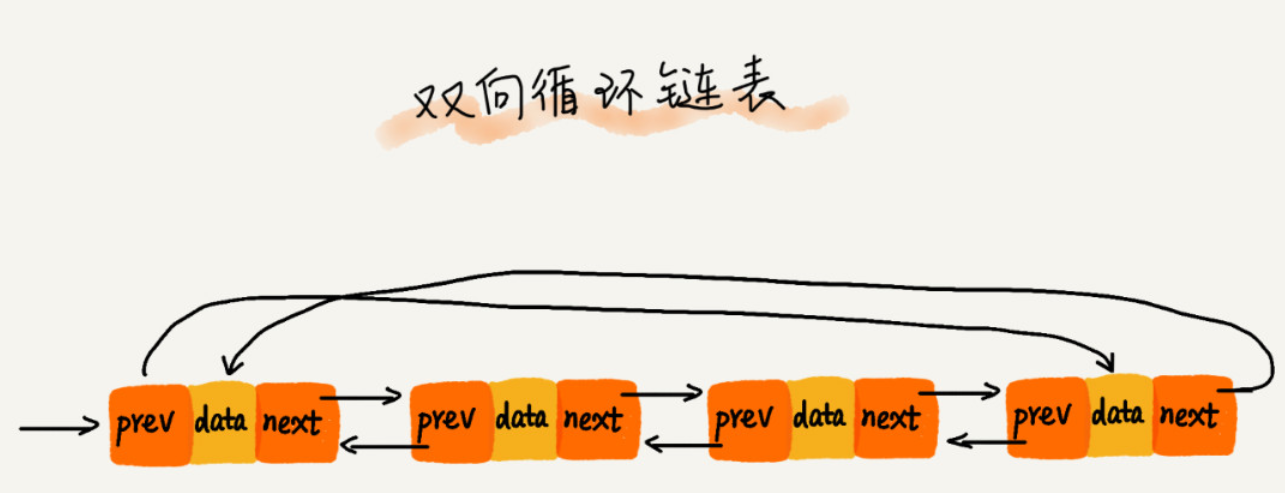 双向循环链表
prev data next prev data next prev data next prev data next